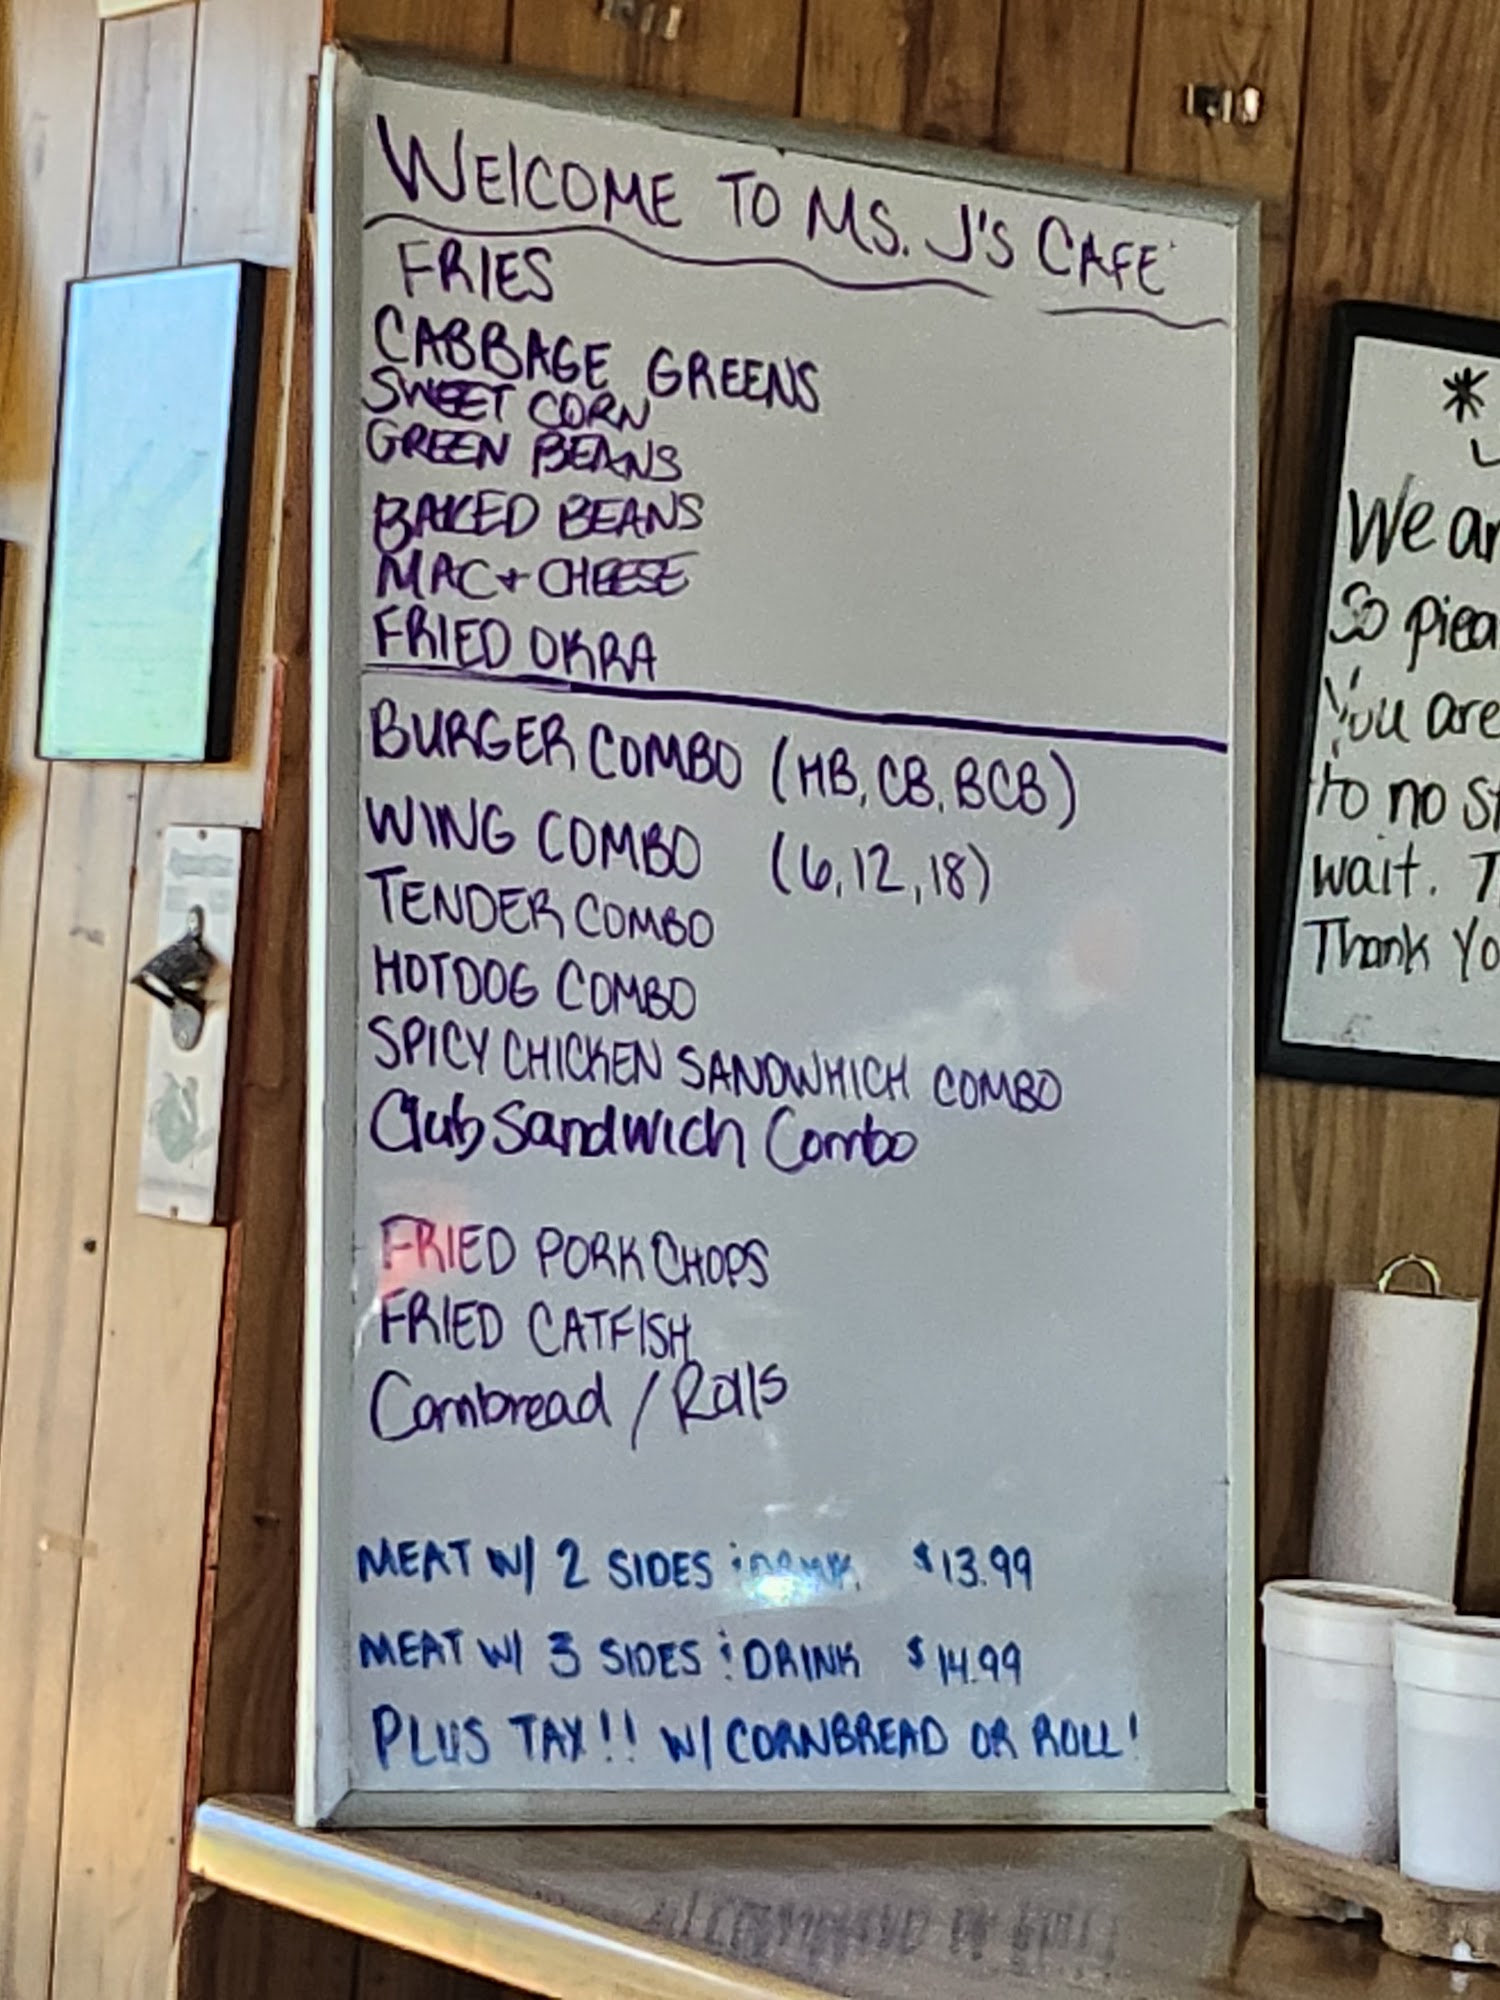 WElCOME TO MS. J'S CAFE
FRIES
CABBAGE GREENS
SWEET CORN
GREEN BEANS
BAKED BEANS
MAC + CHEESE
FRIED OKRA
BURGER COMBO (HB, CB, BCB)
WING COMBO (6, 12, 18)
TENDER COMBO
HOTDOG COMBO
SPICY CHICKEN SANDWHICH COMBO
Club Sandwich Combo
FRIED PORK CHOPS
FRIED CATFISH
Cornbread / Rolls
MEAT W/ 2 SIDES & DRINK $13.99
MEAT W/ 3 SIDES & DRINK $14.99
PLUS TAX!! W/ CORNBREAD OR ROLL!
*
We ar
So plea
You are
to no s
wait. T
Thank Yo